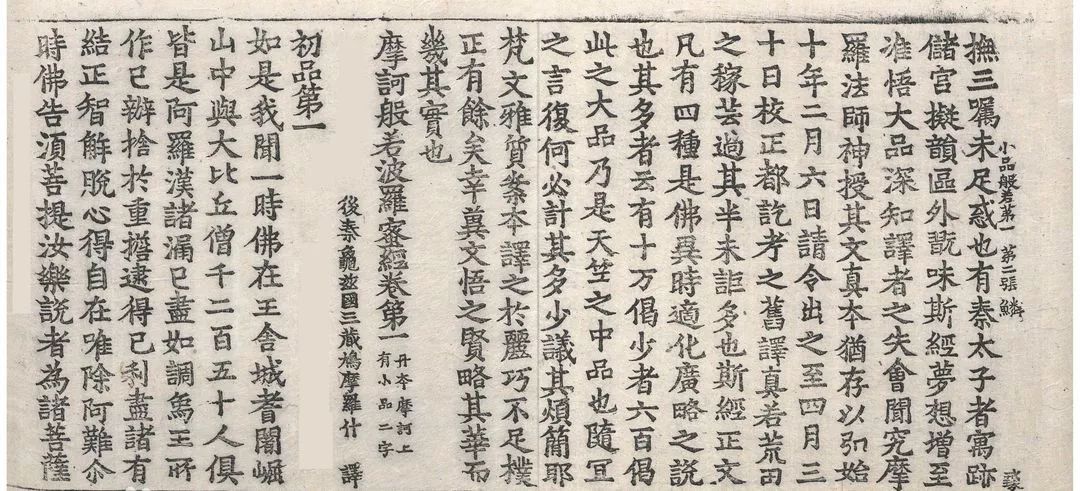 小品般若第一 第二張 鱗
撫三囑未足惑也有秦太子者寓跡
儲宮擬韻區外翫味斯經夢想增至
准悟大品深知譯者之失會聞究摩
羅法師神授其文真夲猶存以弘始
十年二月六日請令出之至四月三
十日校正都訖考之舊譯真若荒田
之稼芸過其半未詎多也斯經正文
凡有四種是佛異時適化廣略之說
也其多者云有十万偈少者六百偈
此之大品乃是天竺之中品也隨冝
之言復何必計其多少議其煩簡耶
梵文雅質案夲譯之於麗巧不足樸
正有餘矣幸冀文悟之賢略其華而
幾其實也
摩訶般若波羅蜜經卷第一
丹夲摩訶上
有小品二字
後秦龜茲國三藏鳩摩羅什 譯
初品第一
如是我聞一時佛在王舍城耆闍崛
山中與大比丘僧千二百五十人俱
皆是阿羅漢諸漏已盡如調象王所
作已辦捨於重擔逮得已利盡諸有
結正智解脫心得自在唯除阿難尒
時佛告須菩提汝樂說者為諸菩薩